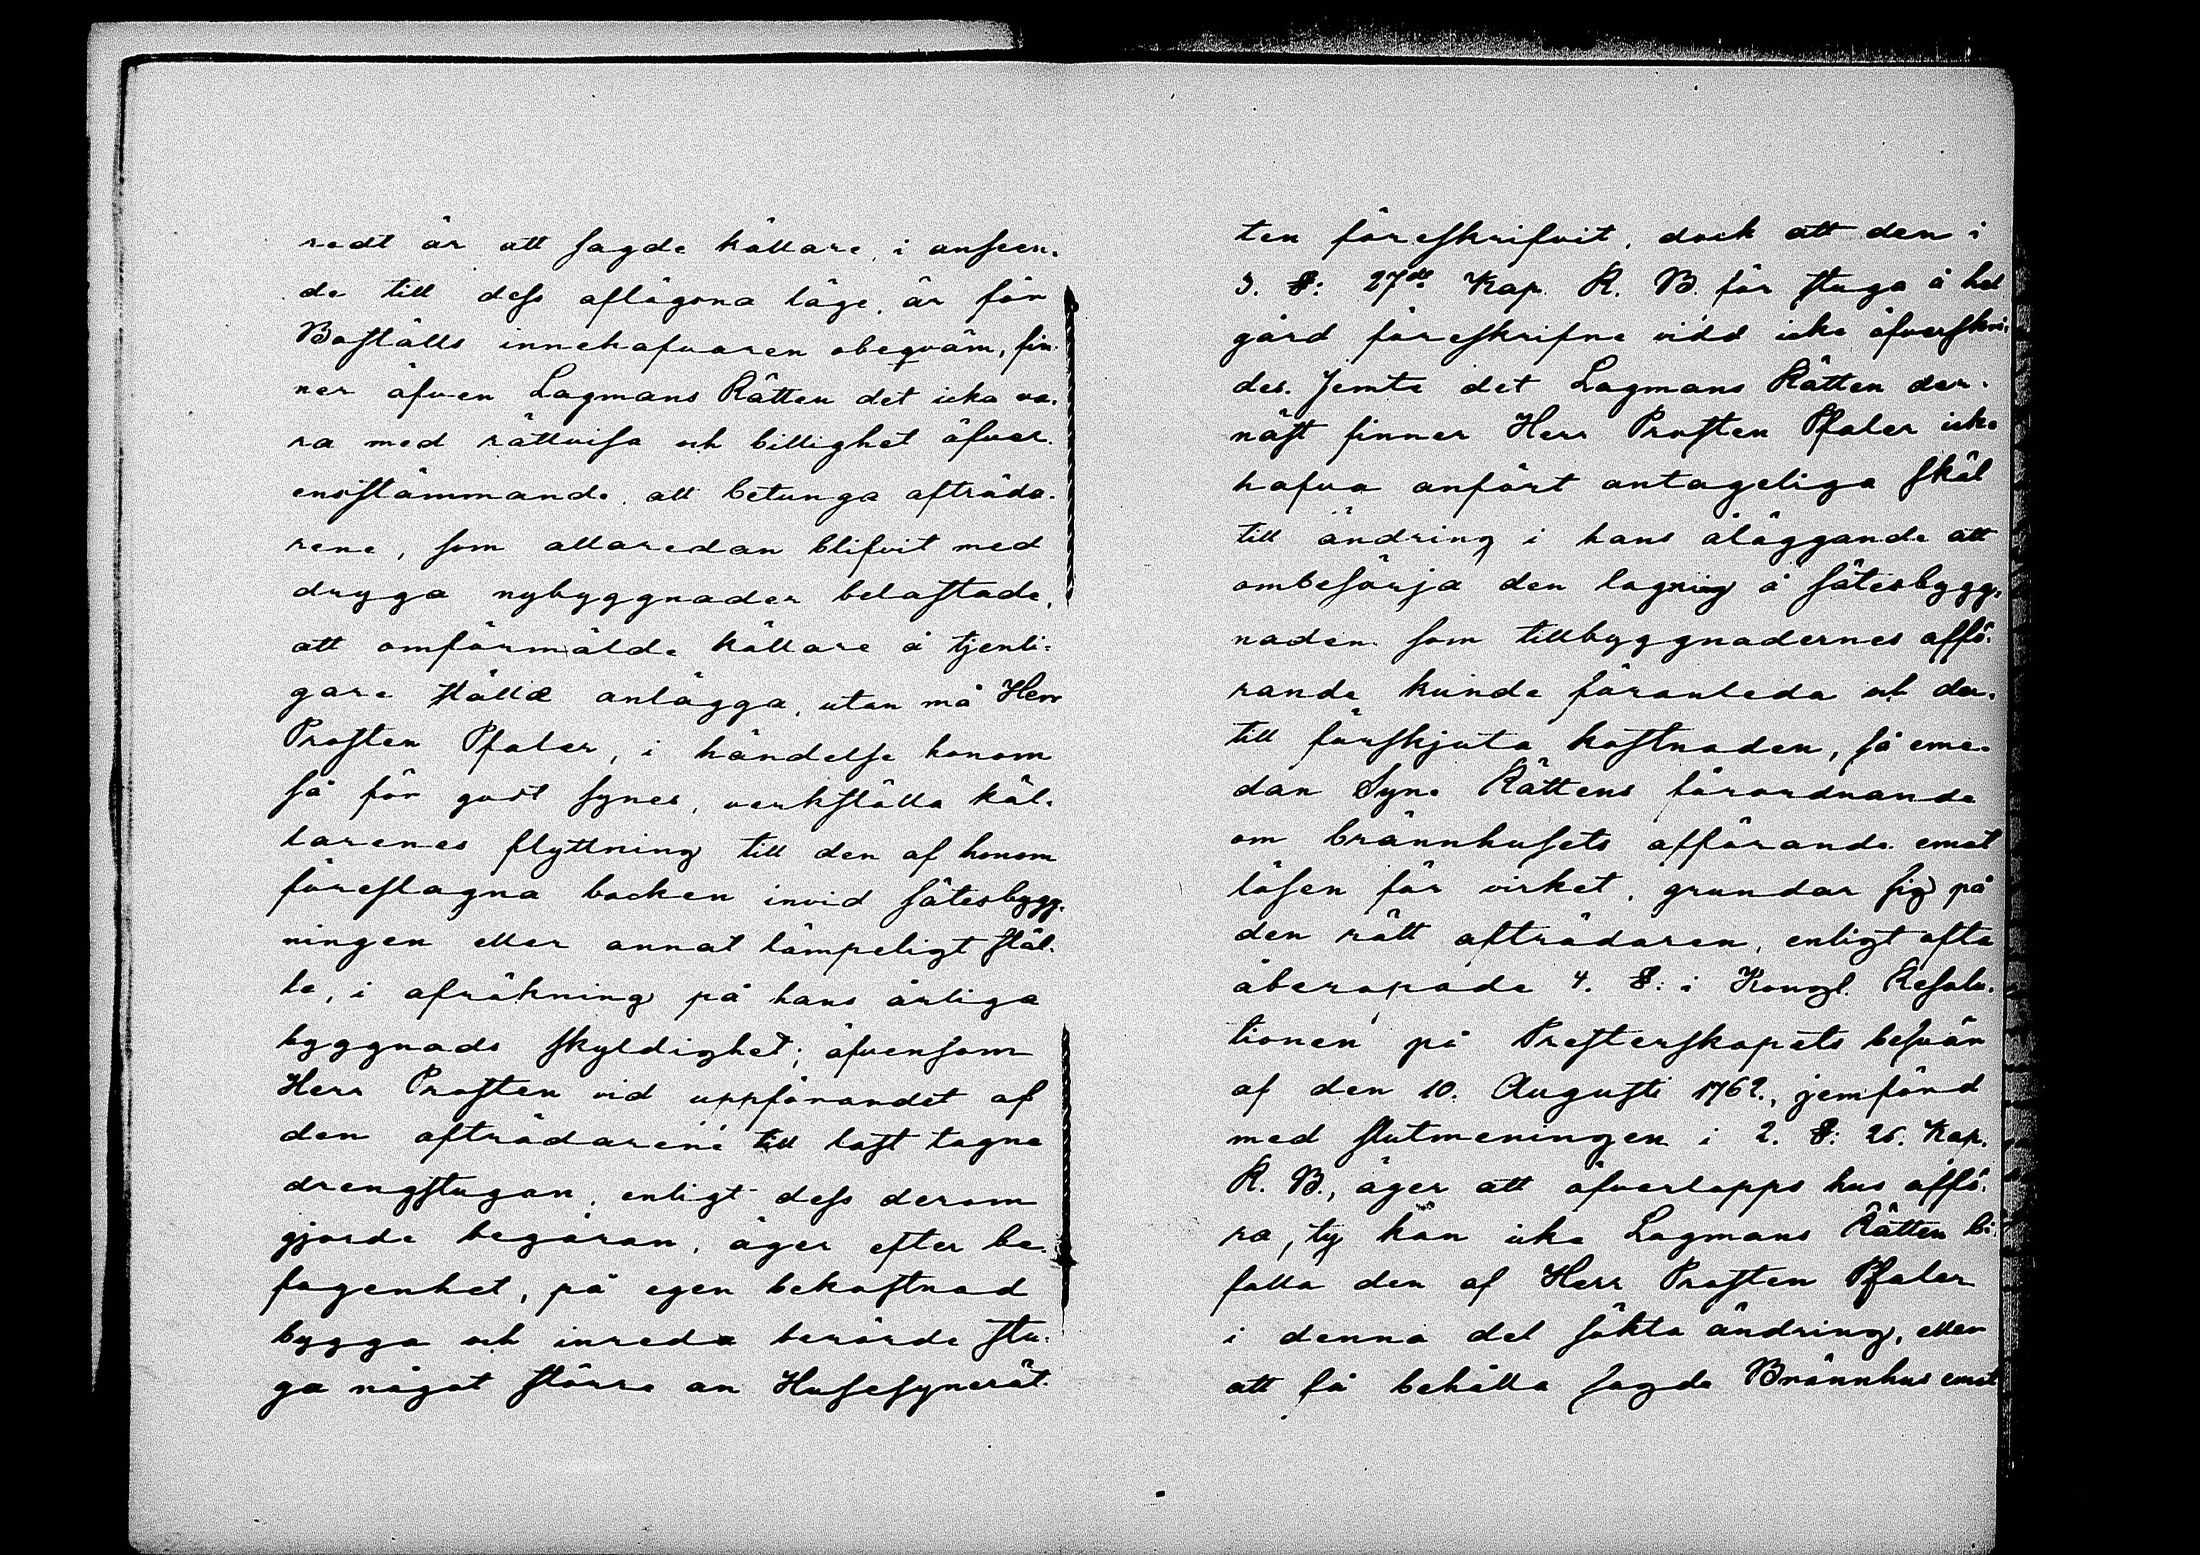 redt är att sagde källare, i anseen-
de till dess aflägsna läge, är för
Boställs innehafvaren obeqväm, fin-
ner äfven Lagmans Rätten det icke va-
ra med rättvisa och billighet öfver-
ensstämmande, att betunga afträda-
rene, som allaredan blifvit med
dryga nybyggnader belastade,
att omförmälde källare å tjenli-
gare ställe anlägga, utan må Herr
Prosten Pfaler, i händelse honom
så för godt synes, verkställa käl-
larenes flyttning till den af honom
föreslagna backen invid sätesbygg-
ningen eller annat lämpeligt stäl-
le, i afräkning på hans årliga
byggnads skyldighet; äfvensom
Herr Prosten vid uppförandet af
den afträdarene till last tagne
drengstugan, enligt dess derom
gjorde begäran, äger efter be-
fagenhet, på egen bekostnad
bygga och inreda berörde stu-
ga något större än Husesynerät-
ten föreskrifvit, dock att den i
3. §: 27de Kap. R. B. för stuga å hel
gård föreskrifne vidd icke öfverskri-
des. Jemte det Lagmans Rätten der-
näst finner Herr Prosten Pfaler icke
hafva anfört antageliga skäl
till ändring i hans åläggande att
ombesörja den lagning å sätesbygg-
naden som tillbyggnadernes affö-
rande kunde föranleda och der-
till förskjuta kostnaden, så eme-
dan Syne Rättens förordnande
om brännhusets afförande emot
lösen för virket, grundar sig på
den rätt afträdaren, enligt ofta
åberopade 4. §: i Kongl. Resolu-
tionen på Presterskapets besvär
af den 10. Augusti 1762., jemförd
med slutmeningen i 2. §: 26. Kap.
R. B., äger att öfverlopps hus affö-
ra, ty kan icke Lagmans Rätten bi-
falla den af Herr Prosten Pfaler
i denna del sökta ändring, eller
att få behålla sagde Brännhus emot